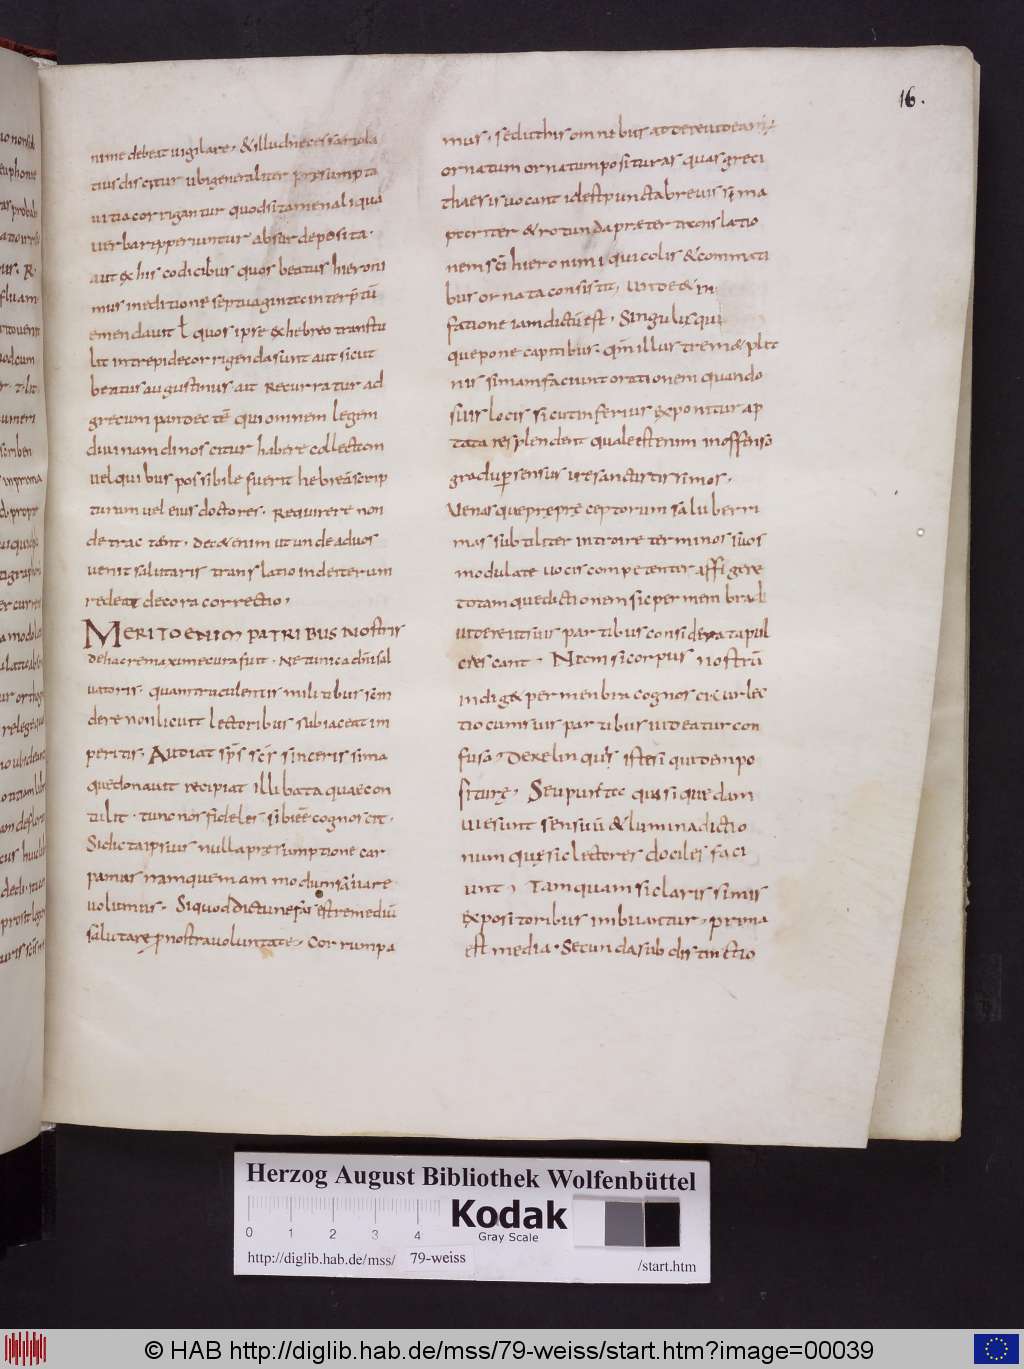 16.
nime debeat vigilare. & illud necessario la
tius discitur ubi generaliter presumpta
vitia corrigantur quod si tamen aliqua
verba repperiuntur absurde posita.
aut ex his codicibus quos beatus hieroni
mus in editione septuaginta interp̄tū
emendavit ł quos ipse ex hebreo transtu
lit intrepide corrigenda sunt aut sicut
beatus augustinus ait Recurratur ad
grecum pandectē qui omnem legem
divinam dinoscitur habere collectam
vel quibus possibile fuerit hebreā scrip
turam vel eius doctores. Requirere non
detractent. Decet enim ut unde ad uos
venit salutaris translatio inde iterum
redeat decora correctio,
MERITO ENIM PATRIBUS Nostris
de hac re maxime cura fuit. Ne tunica dn̄i sal
vatoris. quam truculentis militibus scin
dere non licuit lectoribus subiaceat im
peritis. Audiat sp̄s scs̄ sinceris sima
que donavit recipiat illibata quae con
tulit. tunc nos fideles sibi eē cognoscit.
Si dicta ipsius nulla presumptione car
pamus namquem
volumus. Si quod dictu nefas est remediū
salutare p nostra voluntate. Corrumpa
mus. sed ut his omnibus addere videaris
ornatum ornatum posituras quas greci
thaesis vocant idest puncta brevissima
pariter & rotunda praeter translatio
nem sc̄i hieronimi qui colis & commati
bus ornata consistit,
fatione iam dictū est. Singulis qui
que pone capitibus. qm̄ illustrem & plan
nis simam faciunt orationem quando
suis locis sicut inferius exponitur ap
tata resplendent quale est enim inoffenso
gradu p sensus ire sanctissimos.
Venasque preceptorum saluberri
mas subtiliter introire terminos suos
modulatae vocis competenter affigere
totamque dictionem sic per membra di
videre ut suis partibus considerata pul
crescant. Nam si corpus nostrū
indiget per menbra cognosci cur lec
tio cum suis partibus videatur con
fusa. relinquis istesi quidem po
siturę. Seu puncta quasi quedam
vie sunt sensuū & lumina dictio
num que sic lectores dociles faci
unt, Tamquam si claris simis
expositoribus imbuantur. prima
est media. Secunda subdistinctio
Herzog August Bibliothek Wolfenbüttel
0 1 2 3 4
Kodak
Gray Scale
http://diglib.hab.de/mss/ 79-weiss /start.htm
© HAB http://diglib.hab.de/mss/79-weiss/start.htm?image=00039